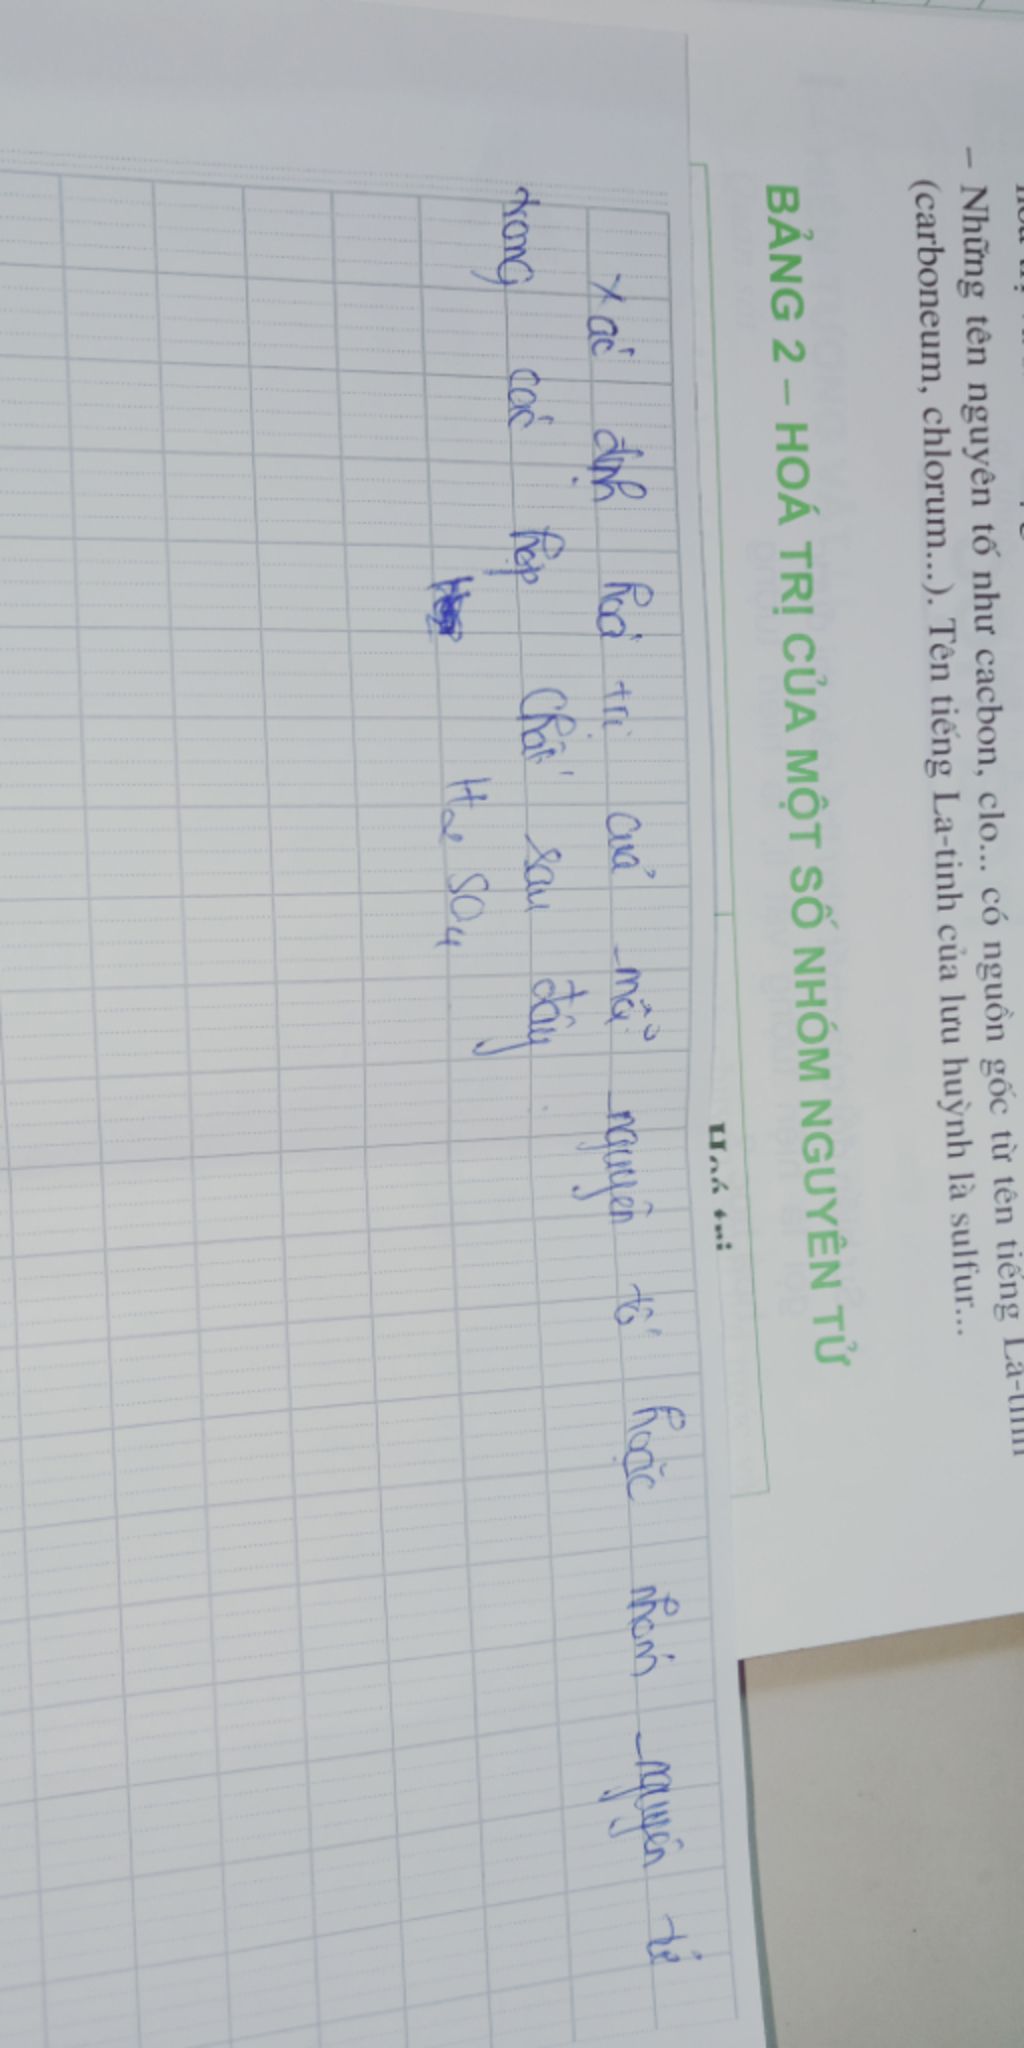 – Những tên nguyên tố như cacbon, clo... có nguồn gốc từ tên tiếng La-tinh
(carboneum, chlorum...). Tên tiếng La-tinh của lưu huỳnh là sulfur...
BẢNG 2 – HOÁ TRỊ CỦA MỘT SỐ NHÓM NGUYÊN TỬ
Hoá trị
Xác định hoá trị của mỗi nguyên tố hoặc nhóm nguyên tử
trong các hợp chất sau đây
H2 SO4